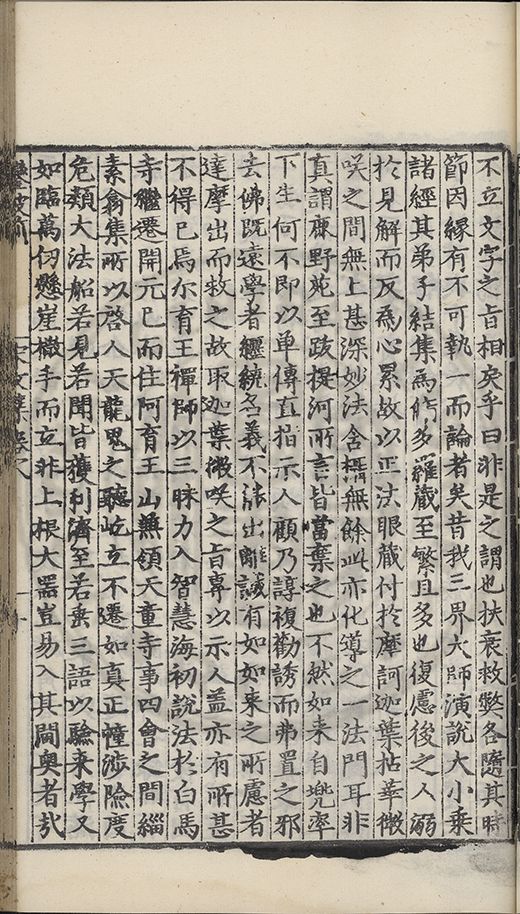 不立文字之旨相戾乎曰非是之謂也扶衰救弊各隨其時
節因緣有不可執一而論者矣昔我三界大師演說大小乘
諸經其弟子結集為修多羅藏至繁且多也復慮後之人溺
於見解而反為心累故以正法眼藏付於摩訶迦葉拈華微
咲之間無上甚深妙法含攝無餘此亦化導之一法門耳非
真謂鹿野苑至跋提河所言皆當棄之也不然如来自兜率
下生何不即以单傳直指示人顧乃諄複勸誘而弗置之邪
去佛既遠學者纒繞名義不能出離誠有如如来之所慮者
達摩出而救之故取迦葉微咲之旨專以示人盖亦有所甚
不得已焉尔育王禪師以三昧力入智慧海初說法於白馬
寺繼遷開元已而住阿育王山兼領天童寺事四會之間緇
素翕集所以啓人天龍鬼之聽屹立不遷如真正幢涉險度
危類大法船若見若聞皆獲利濟至若垂三語以驗来學又
如臨萬仞懸崖撒手而立非上根大器豈易入其閫奥者哉